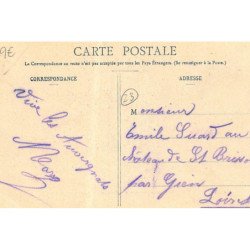 9€
CARTE POSTALE
La Correspondance au recto n'est pas acceptée par tous les Pays Étrangers. (Se renseigner à la Poste.)
CORRESPONDANCE
ADRESSE
Vive les Auvergnats
28
Monsieur
Emile Suard au
de St Brisson
par Gien
Loiret